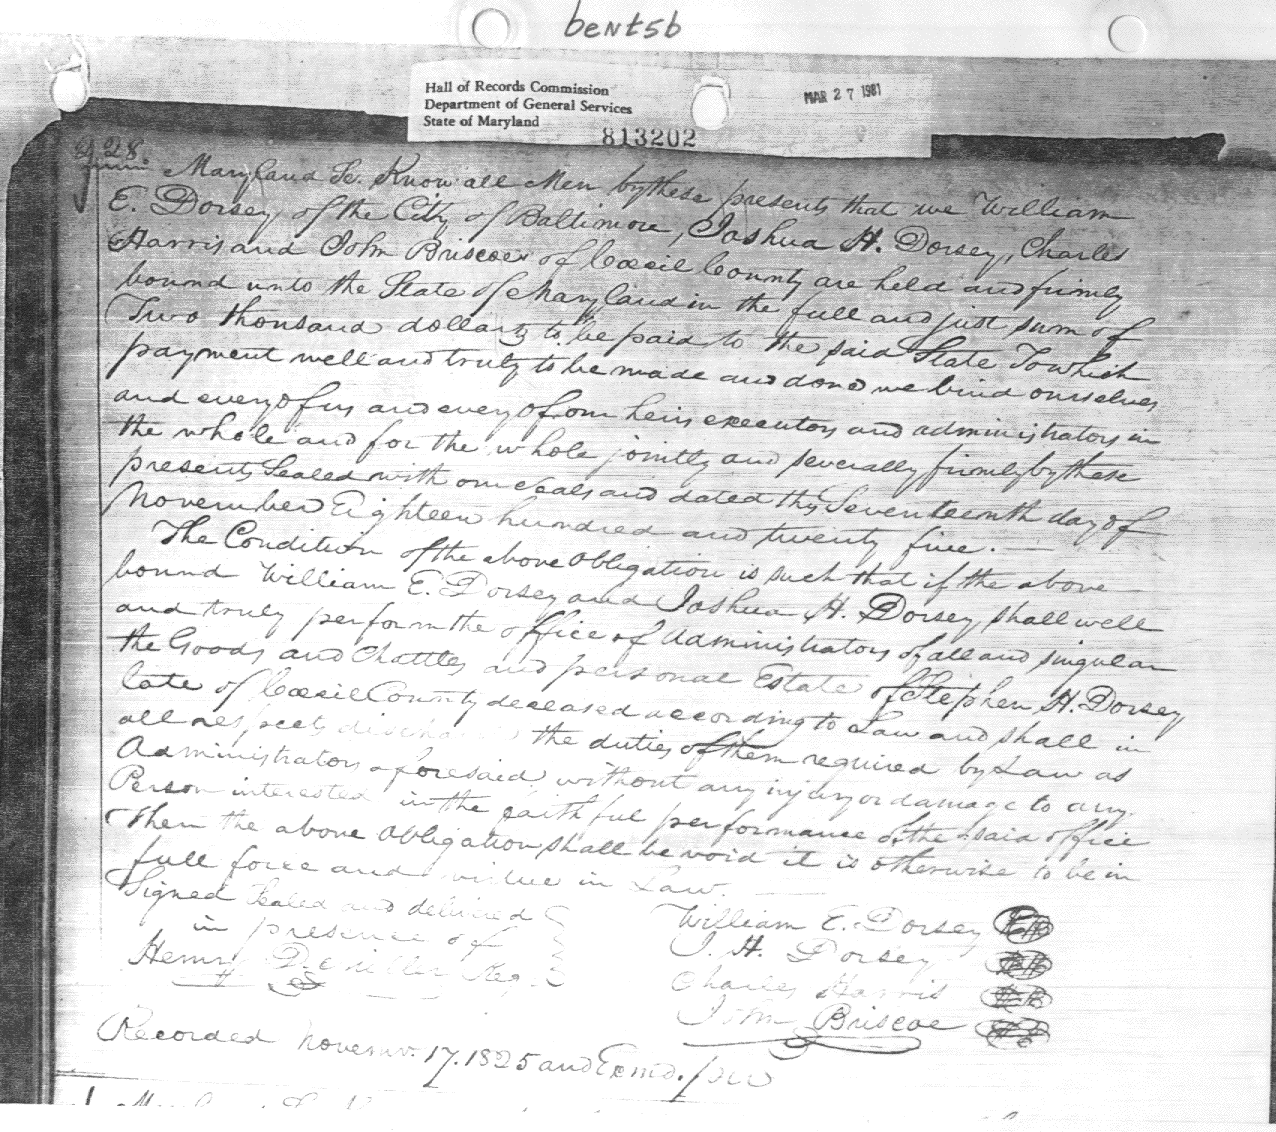 bent5b
Hall of Records Commission
Department of General Services
State of Maryland
MAR 27 1981
813202
Maryland Sc. Know all Men by these presents that we William
E. Dorsey of the City of Baltimore, Joshua H. Dorsey, Charles
Harris and John Briscoe of Cecil County are held and firmly
bound unto the State of Maryland in the full and just sum of
Two thousand dollars to be paid to the said State To which
payment well and truly to be made and done we bind ourselves
and every of us and every of our heirs executors and administrators in
the whole and for the whole jointly and severally firmly by these
presents Sealed with our Seals and dated this Seventeenth day of
November Eighteen hundred and twenty five. —
The Condition of the above Obligation is such that if the above
bound William E. Dorsey and Joshua H. Dorsey shall well
and truly perform the office of Administrators of all and singular
the Goods and Chattles and personal Estate of Stephen H. Dorsey
late of Cecil County deceased according to Law and shall in
all respects discharge the duties of them required by Law as
Administrators aforesaid without any injury or damage to any
Person interested in the faithful performance of the said office
Then the above Obligation shall be void it is otherwise to be in
full force and virtue in Law.
Signed Sealed and delivered
in presence of
Henry D. Miller Reg.
William E. Dorsey
J. H. Dorsey
Charles Harris
John Briscoe
Recorded Novemr. 17. 1825 and Exmd.